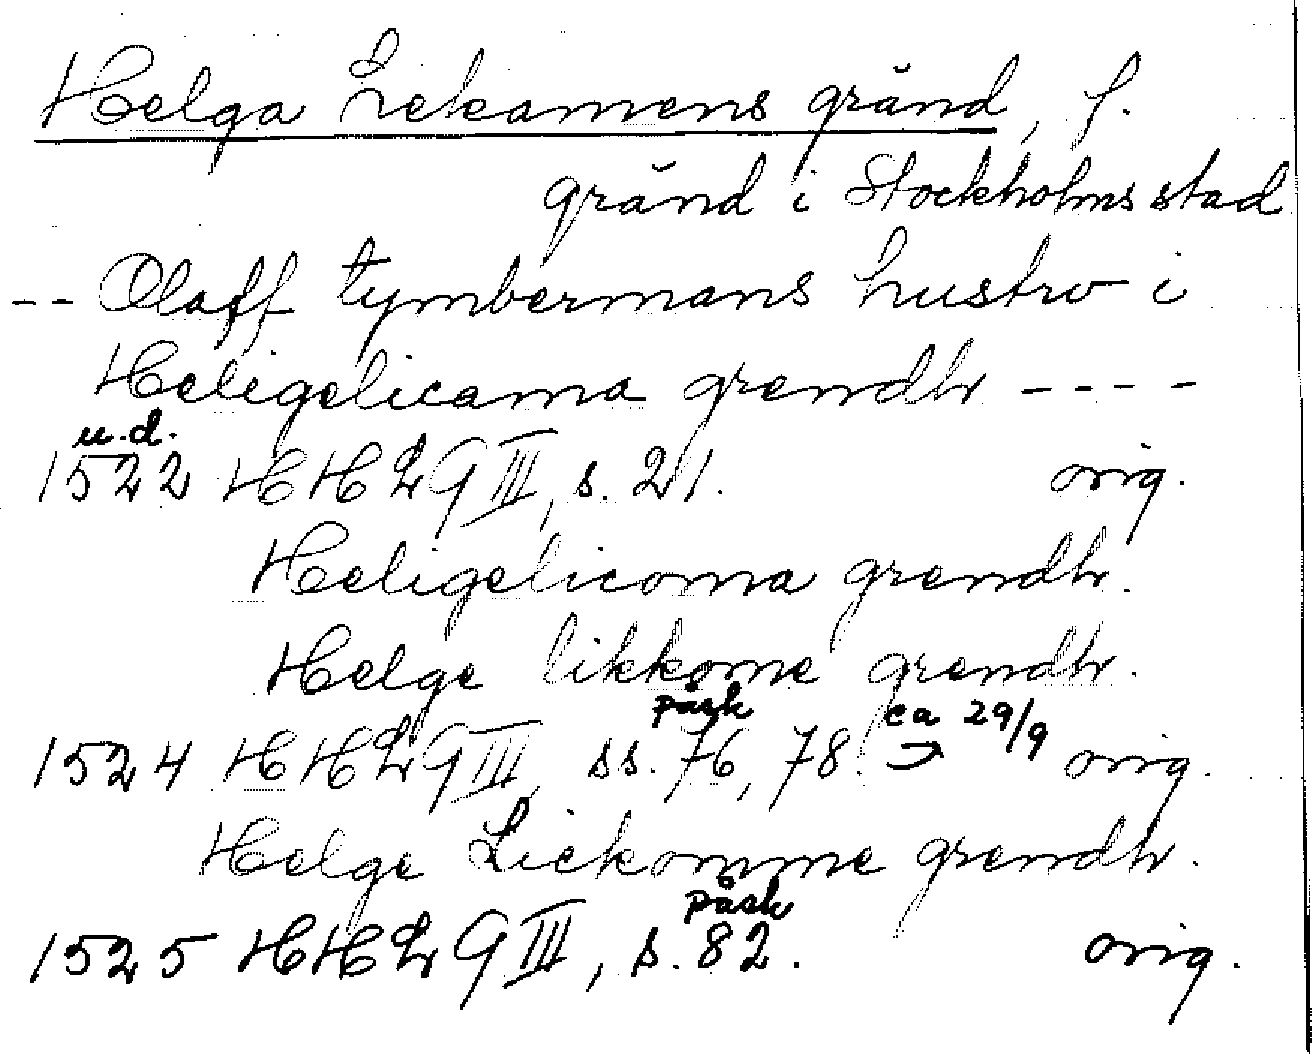 Helga Lekamens gränd, f.
gränd i Stockholms stad
-- Olaff tymbermans hustro i
Heligelicama grendh ----
u.d.
1522 HHLG III, s. 21. orig.
Heligelicoma grendh.
Helge likkome grendh.
påsk ca 29/9
1524 HHLG III, ss. 76, 78. orig.
Helge Lickomme grendh.
påsk
1525 HHLG III, s. 82. orig.